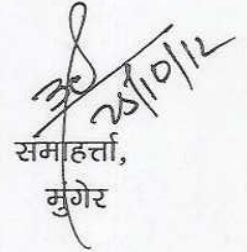 25/10/12
समाहर्त्ता,
मुंगेर